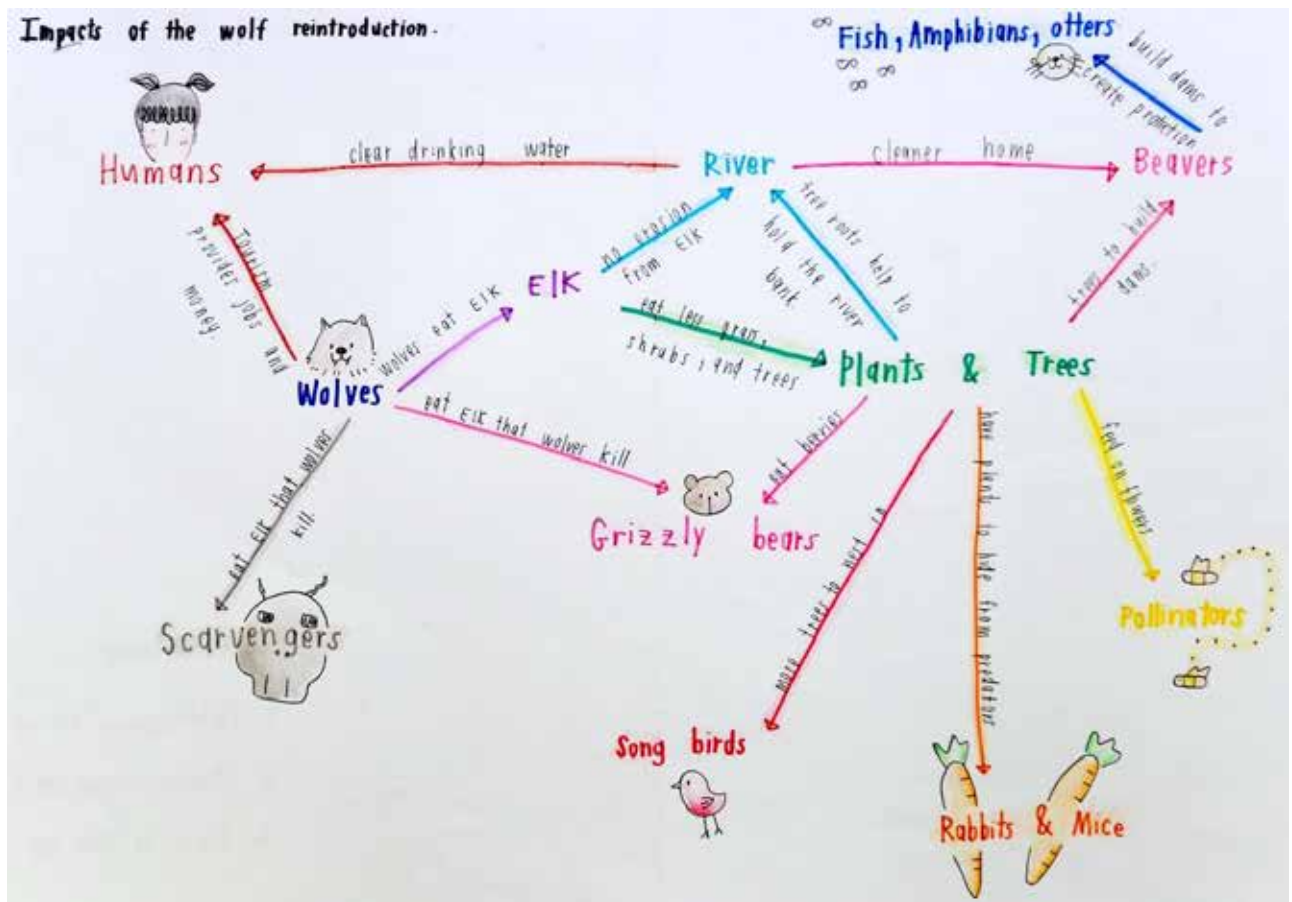 Impacts of the wolf reintroduction.
Fish, Amphibians, otters
build dams to
create protection
Humans
clear drinking water
River
cleaner home
Beavers
Tourism
provides jobs and
money.
no erosion
from Elk
tree roots help to
hold the river
bank
trees to build
dams.
Elk
wolves eat Elk
eat less grass,
shrubs, and trees
Plants & Trees
Wolves
eat Elk that wolves kill
eat berries
have plants to hide from predators
feed on flowers
eat Elk that wolves
kill
Grizzly bears
more trees to nest in
Pollinators
Scarvengers
Song birds
Rabbits & Mice